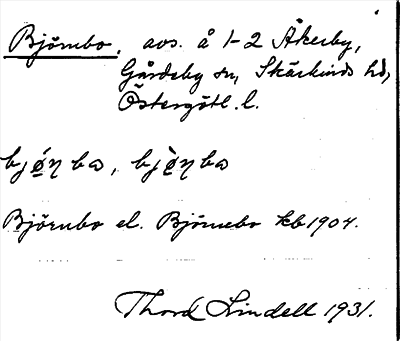 Björnbo, avs. å 1-2 Åkerby,
Gårdeby sn, Skärkinds hd,
Östergötl. l.
Björnbo el. Björnebo kb 1904.
Thord Lindell 1931.